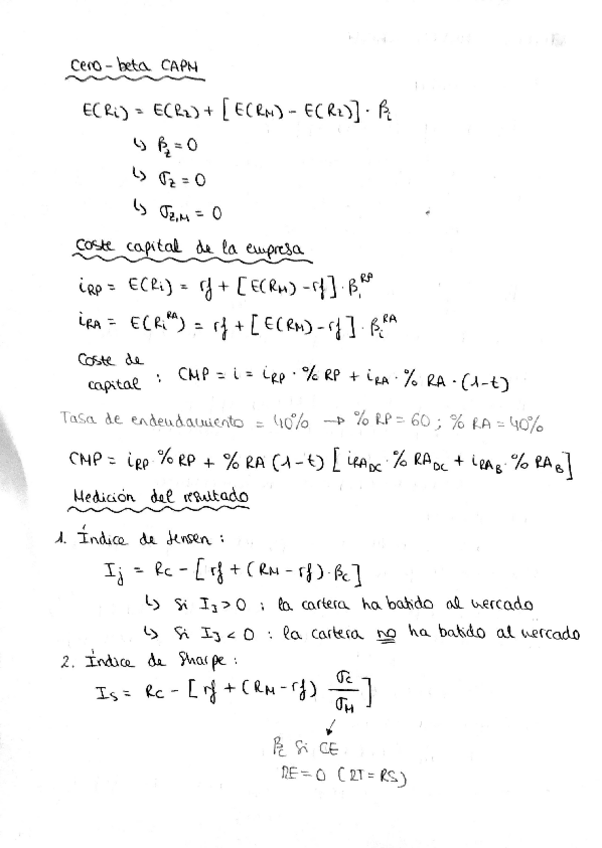 Cero-beta CAPM
E(Ri) = E(Rz) + [E(RM) - E(Rz)] · βi
↳ βz = 0
↳ σz = 0
↳ σz,M = 0
Coste capital de la empresa
iRP = E(Ri) = rf + [E(RM) - rf] · βi^RP
iRA = E(Ri^RA) = rf + [E(RM) - rf] · βi^RA
Coste de capital : CMP = i = iRP · % RP + iRA · % RA · (1-t)
Tasa de endeudamiento = 40% → % RP = 60 ; % RA = 40%
CMP = iRP % RP + % RA (1-t) [iRA_DC · % RA_DC + iRA_B · % RA_B]
Medición del resultado
1. Índice de Jensen :
Ij = Rc - [rf + (RM - rf) · βc]
↳ Si IJ > 0 : la cartera ha batido al mercado
↳ Si IJ < 0 : la cartera no ha batido al mercado
2. Índice de Sharpe :
Is = Rc - [rf + (RM - rf) σc/σM]
βc Si CE
RE = 0 (RT = RS)